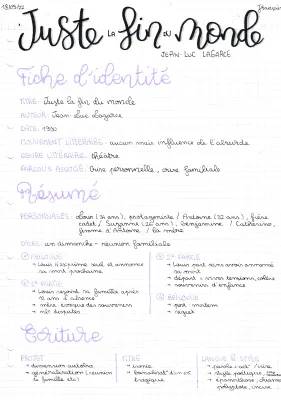 18/05/22
Français
Juste LA fin DU monde
JEAN-LUC LAGARCE
Fiche d'identité
TITRE : Juste la fin du monde
AUTEUR : Jean-Luc Lagarce
DATE : 1990
MOUVEMENT LITTÉRAIRE : aucun mais influence de l'absurde
GENRE LITTÉRAIRE : théâtre
PARCOURS ASSOCIÉ : Crise personnelle, crise familiale
Résumé
PERSONNAGES : Louis (34 ans), protagoniste / Antoine (32 ans), frère
cadet / Suzanne (23 ans), benjamine / Catherine,
femme d'Antoine / la mère
LIEU : un dimanche - réunion familiale
① PROLOGUE
→ Louis s'exprime seul et annonce
sa mort prochaine
② 1e PARTIE
→ Louis rejoint sa famille après
12 ans d'absence
→ mère évoque des souvenirs
→ ne dit
③ 2e PARTIE
→ Louis part sans avoir annoncé
sa mort
→ départ : vives tensions, colère
→ souvenirs d'enfance
④ ÉPILOGUE
→ post-mortem
→ regret
Écriture
PROJET
→ dimension autobio
→ généralisation (réunion
la famille etc)
TITRE
→ ironie
→ banalisat° d'un évt
tragique
LANGUE & STYLE
→ parole : act° / vire
→ style poétique,
→ épanorthose :
polyptote,